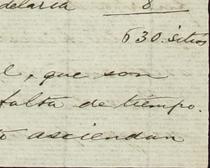 delaria 8
630. sitios
l, que son
falta de tiempo.
to asciendan